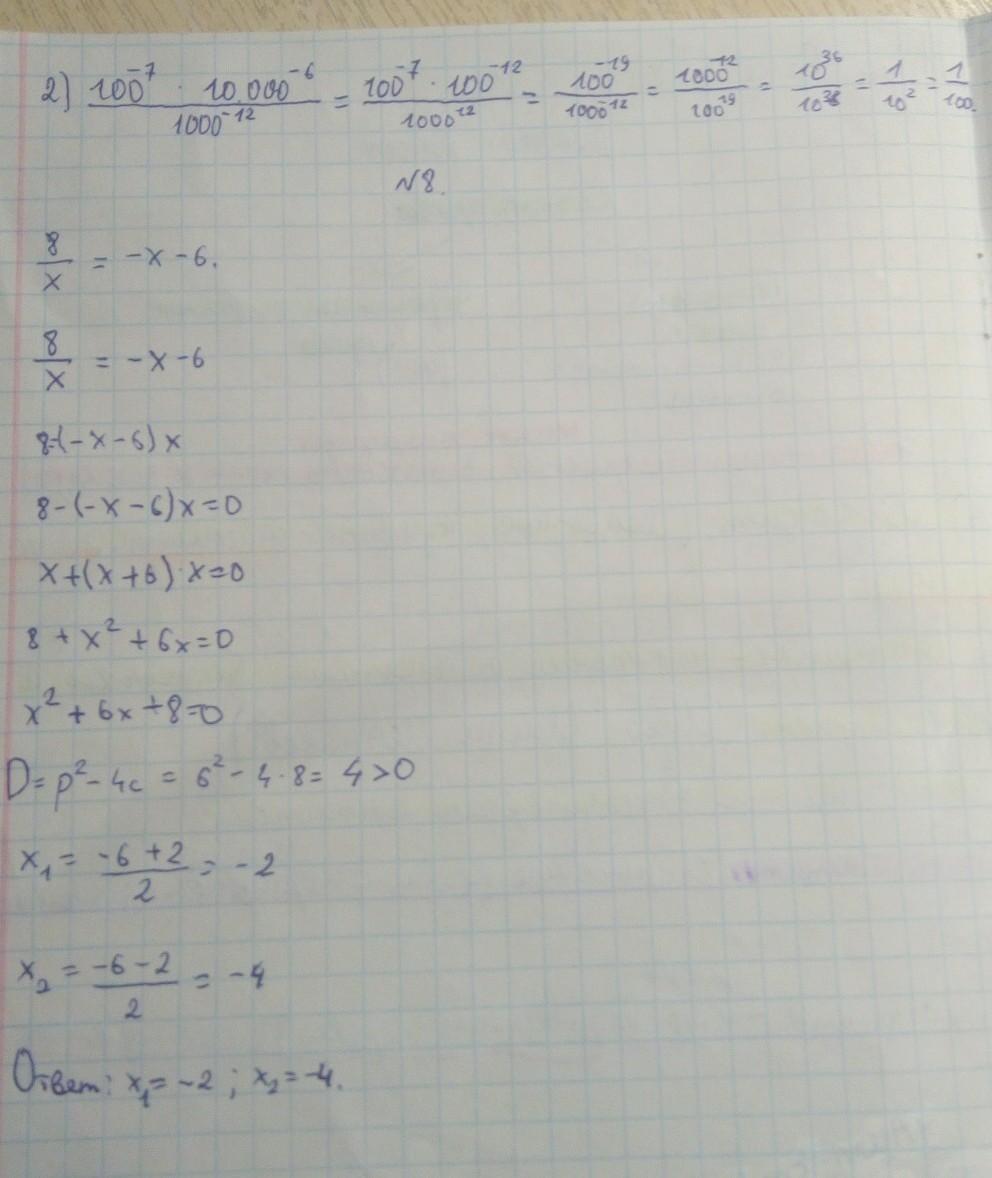 2) 100⁻⁷ · 10.000⁻⁶ / 1000⁻¹² = 100⁻⁷ · 100⁻¹² / 1000¹² = 100⁻¹⁹ / 1000⁻¹² = 1000¹² / 100¹⁹ = 10³⁶ / 10³⁸ = 1 / 10² = 1 / 100.
N8.
8/x = -x - 6.
8/x = -x - 6
8-(-x-6)x
8-(-x-6)x=0
x+(x+6)·x=0
8 + x² + 6x=0
x² + 6x +8=0
D= p² - 4c = 6² - 4·8 = 4>0
x₁ = (-6 + 2) / 2 = -2
x₂ = (-6 - 2) / 2 = -4
Ответ: x₁= -2 ; x₂= -4.